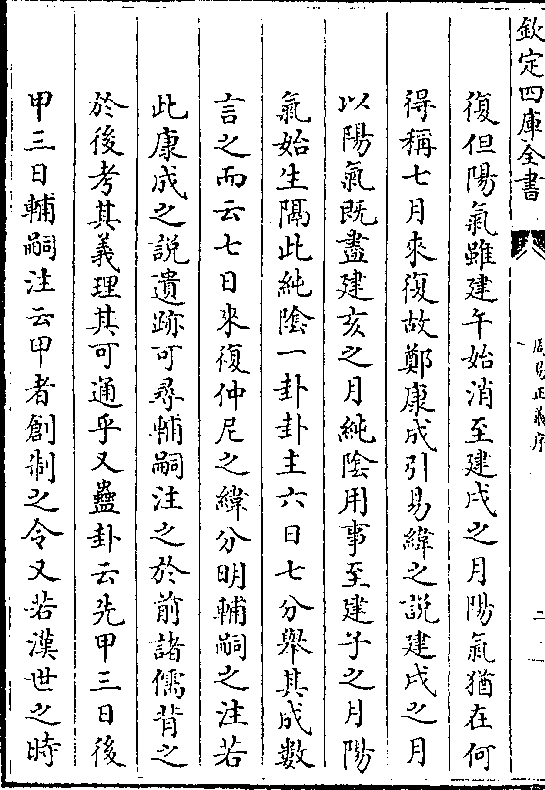 欽定四庫全書
周易正義序
二
復但陽氣雖建午始消至建戌之月陽氣猶在何
得稱七月來復故鄭康成引易緯之說建戌之月
以陽氣既盡建亥之月純陰用事至建子之月陽
氣始生隔此純陰一卦卦主六日七分舉其成數
言之而云七日來復仲尼之緯分明輔嗣之注若
此康成之說遺跡可尋輔嗣注之於前諸儒背之
於後考其義理其可通乎又蠱卦云先甲三日後
甲三日輔嗣注云甲者創制之令又若漢世之時